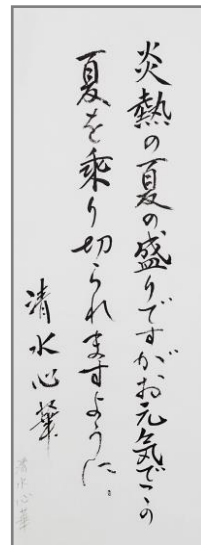 炎熱の夏の盛りですが、お元気でこの
夏を乗り切られますように。
清水心華
清水心華